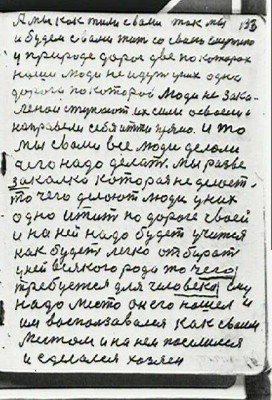 А мы как жили с вами так мы 133
и будем с вами жить со своим
у природе дороге две по которой
наши люди не идут у них одна
дорога по которой люди не зака-
лёной ступают их силы освоены
направели себя итти прямо. и то
мы с вами все люди делали
чего надо делать. мы разве
закалка которая не делает.
то чего делают люди у них
одно итить по дороге своей
и на ней надо будет учится
как будет легко отбирать
у ней всякого рода то чего
требуется для человека ему
надо место он его нашел и
им воспользовался как своим
местом и на нем поселился
и сделался хозяен